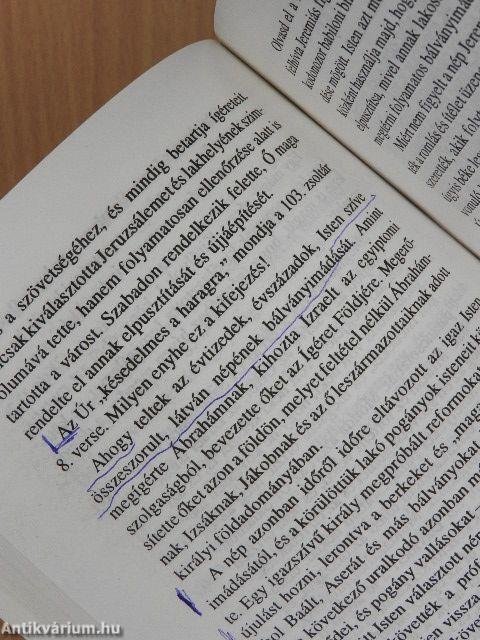 a szövetségéhez, és mindig betartja ígéreteit.
csak kiválasztotta Jeruzsálemet és lakhelyének szim-
ólumává tette, hanem folyamatosan ellenőrzése alatt is
artotta a várost. Szabadon rendelkezik felette, Ő maga
rendelte el annak elpusztítását és újjáépítését.
Az Úr „késedelmes a haragra,” mondja a 103. zsoltár
8. verse. Milyen enyhe ez a kifejezés!
Ahogy teltek az évtizedek, évszázadok, Isten szíve
összeszorult, látván népének bálványimádását. Amint
megígérte Ábrahámnak, kihozta Izraelt az egyiptomi
szolgaságból, bevezette őket az Ígéret Földjére. Megerő-
sítette őket azon a földön, melyet feltétel nélkül Ábrahám-
nak, Izsáknak, Jákobnak és az ő leszármazottaiknak adott
királyi földadományában.
A nép azonban időről időre eltávozott az igaz Isten
imádásától, és a körülöttük lakó pogányok isteneit kö
te. Egy igazszívű király megpróbált reformokat
újulást hozni, lerontva a berkeket és „maga
ból Baált, Aserát és más bálványoka
következő uralkodó azonban m
lei, és pogány vallásokat
Isten választott né
övették a pró
Olvasd el a
felhívta Jeremiás fi
dése mögött. Isten azt m
közként használja majd, hog
epusztítsa, mivel annak lakos
megtérni folyamatos bálványimá
Miért nem figyelt a nép Jerem
ték a romlás és ítélet üzenet
szerették, akik foly
úgyis béke le
Antikvárium.hu